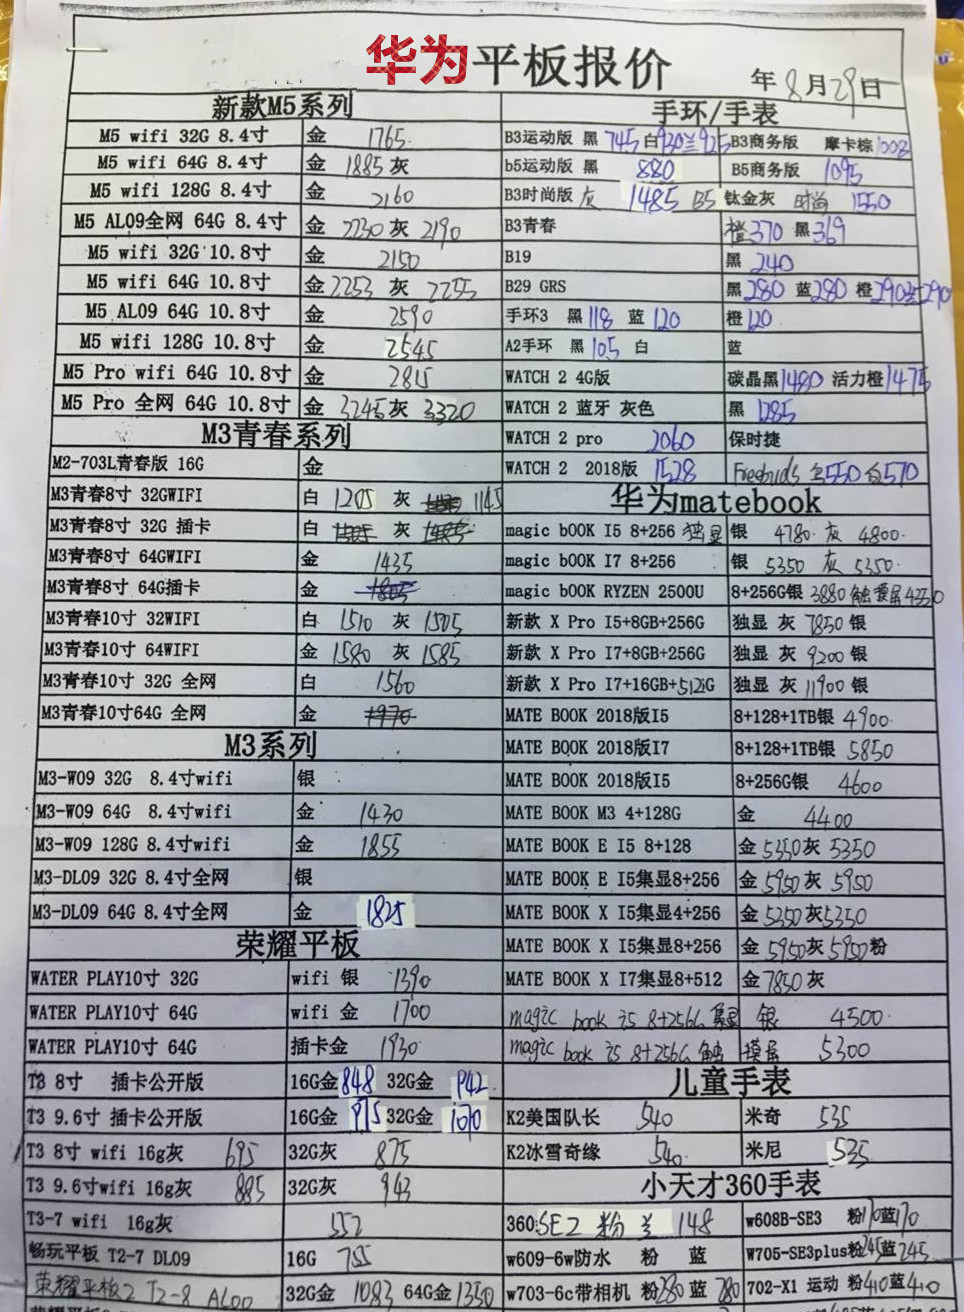 华为平板报价
年8月29日
新款M5系列
M5 wifi 32G 8.4寸 金 1765
M5 wifi 64G 8.4寸 金 1885 灰
M5 wifi 128G 8.4寸 金 2160
M5 AL09全网 64G 8.4寸 金 2230 灰 2190
M5 wifi 32G 10.8寸 金 2150
M5 wifi 64G 10.8寸 金 2253 灰 2255
M5 AL09 64G 10.8寸 金 2590
M5 wifi 128G 10.8寸 金 2545
M5 Pro wifi 64G 10.8寸 金 2815
M5 Pro 全网 64G 10.8寸 金 3245 灰 3320
M3青春系列
M2-703L青春版 16G 金
M3青春8寸 32GWIFI 白 1205 灰 1145
M3青春8寸 32G 插卡 白 灰
M3青春8寸 64GWIFI 金 1435
M3青春8寸 64G插卡 金 1805
M3青春10寸 32WIFI 白 1510 灰 1505
M3青春10寸 64WIFI 金 1580 灰 1585
M3青春10寸 32G 全网 白 1560
M3青春10寸64G 全网 金 1970
M3系列
M3-W09 32G 8.4寸wifi 银
M3-W09 64G 8.4寸wifi 金 1430
M3-W09 128G 8.4寸wifi 金 1855
M3-DL09 32G 8.4寸全网 银
M3-DL09 64G 8.4寸全网 金 1825
荣耀平板
WATER PLAY10寸 32G wifi 银 1390
WATER PLAY10寸 64G wifi 金 1700
WATER PLAY10寸 64G 插卡金 1930
T3 8寸 插卡公开版 16G金 848 32G金 942
T3 9.6寸 插卡公开版 16G金 975 32G金 1070
T3 8寸 wifi 16g灰 695 32G灰 875
T3 9.6寸wifi 16g灰 885 32G灰 943
T3-7 wifi 16g灰 552
畅玩平板 T2-7 DL09 16G 755
荣耀平板2 T2-8 AL00 32G金 1083 64G金 1350
手环/手表
B3运动版 黑 745 白 930 兰 925 B3商务版 摩卡棕 1008
b5运动版 黑 880 B5商务版 1095
B3时尚版 灰 1485 B5 钛金灰 时尚 1550
B3青春 橙 370 黑 369
B19 黑 240
B29 GRS 黑 280 蓝 280 橙 290 290
手环3 黑 118 蓝 120 橙 120
A2手环 黑 105 白 蓝
WATCH 2 4G版 碳晶黑 1480 活力橙 1475
WATCH 2 蓝牙 灰色 黑 1285
WATCH 2 pro 2060 保时捷
WATCH 2 2018版 1528 Freebuds 550 白 570
华为matebook
magic bOOK I5 8+256 独显 银 4780 灰 4800
magic bOOK I7 8+256 银 5350 灰 5350
magic bOOK RYZEN 2500U 8+256G银 3880 触摸屏
新款 X Pro I5+8GB+256G 独显 灰 7850 银
新款 X Pro I7+8GB+256G 独显 灰 9200 银
新款 X Pro I7+16GB+512G 独显 灰 11900 银
MATE BOOK 2018版I5 8+128+1TB银 4900
MATE BOOK 2018版I7 8+128+1TB银 5850
MATE BOOK 2018版I5 8+256G银 4600
MATE BOOK M3 4+128G 金 4400
MATE BOOK E I5 8+128 金 5350 灰 5350
MATE BOOK E I5集显8+256 金 5950 灰 5950
MATE BOOK X I5集显4+256 金 5350 灰 5350
MATE BOOK X I5集显8+256 金 5950 灰 5950 粉
MATE BOOK X I7集显8+512 金 7850 灰
magic book i5 8+256G 集显 银 4500
magic book i5 8+256G 触 摸屏 5300
儿童手表
K2美国队长 540 米奇 535
K2冰雪奇缘 540 米尼 535
小天才360手表
360: SE2 粉 兰 148 w608B-SE3 粉 170 蓝 170
w609-6w防水 粉 蓝 W705-SE3plus粉 245 蓝 245
w703-6c带相机 粉 280 蓝 280 702-X1 运动 粉 410 蓝 410